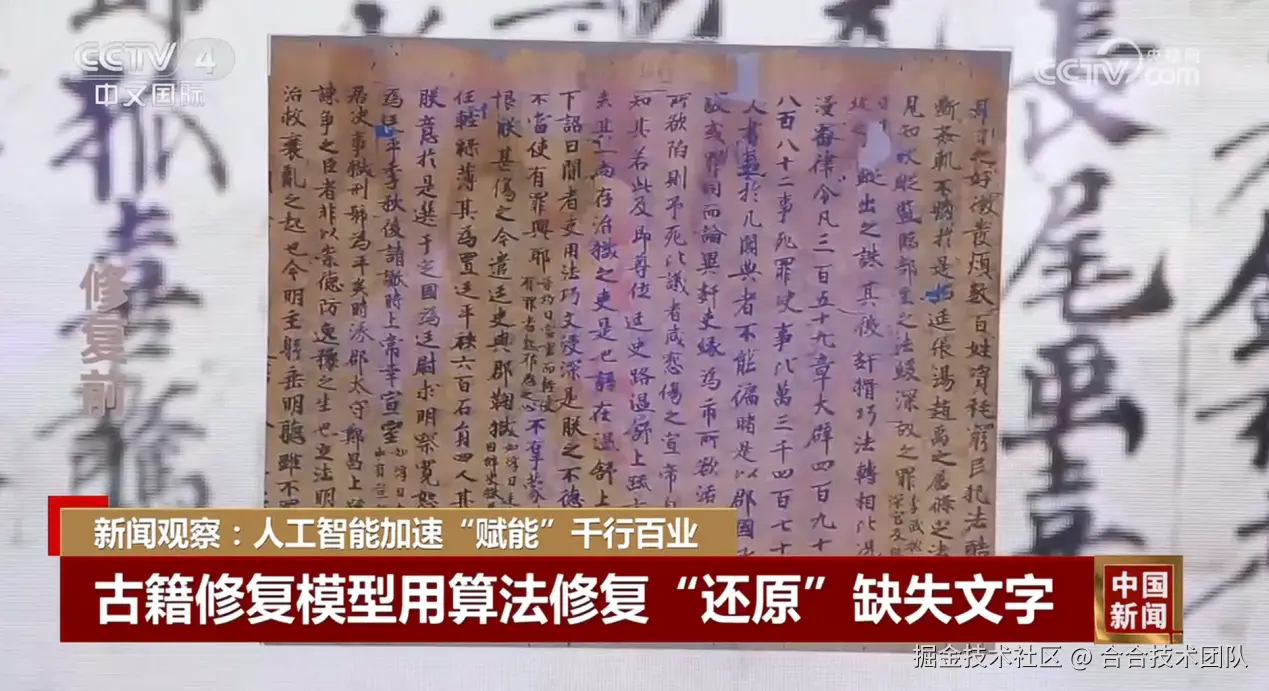 CCTV 4
中文国际
央视网
CCTV.com
修复前
長尾單
之好徵發煩數百姓貧耗窮民犯法酷
斷姦軌不勝於是招進張湯趙禹之屬條定法
見知故縱監臨部主之法緩深故之罪
縱出之誅其後姧猾巧法轉相比況
漫審律令凡三百五十九章大辟四百九十
八百八十二事死罪決事比萬三千四百七十
人書盈於几閣典者不能徧睹是以郡國
或罪同而論異姧吏緣為市所欲活
所欲陷則予死比議者咸寃傷之宣帝自
知其若此及即尊位廷史路溫舒上疏
其一尚存治獄之吏是也語在溫舒上
下詔曰間者吏用法巧文浸深是朕之不德
不當使有罪興耶 不辜蒙
恨朕甚傷之今遣廷史與郡鞠獄
任輕祿薄其為置廷平秩六百石員四人其
朕意於是選于定國為廷尉求明察寬恕
為廷平季秋後請讞時上常幸宣室
君決事獄刑號為平矣時涿郡太守鄭昌上
諫爭之臣者非以崇德防逸豫之生也立法明
治救衰亂之起也今明主躬垂明聽雖不
新闻观察：人工智能加速“赋能”千行百业
古籍修复模型用算法修复“还原”缺失文字
中国
新闻
掘金技术社区 @ 合合技术团队